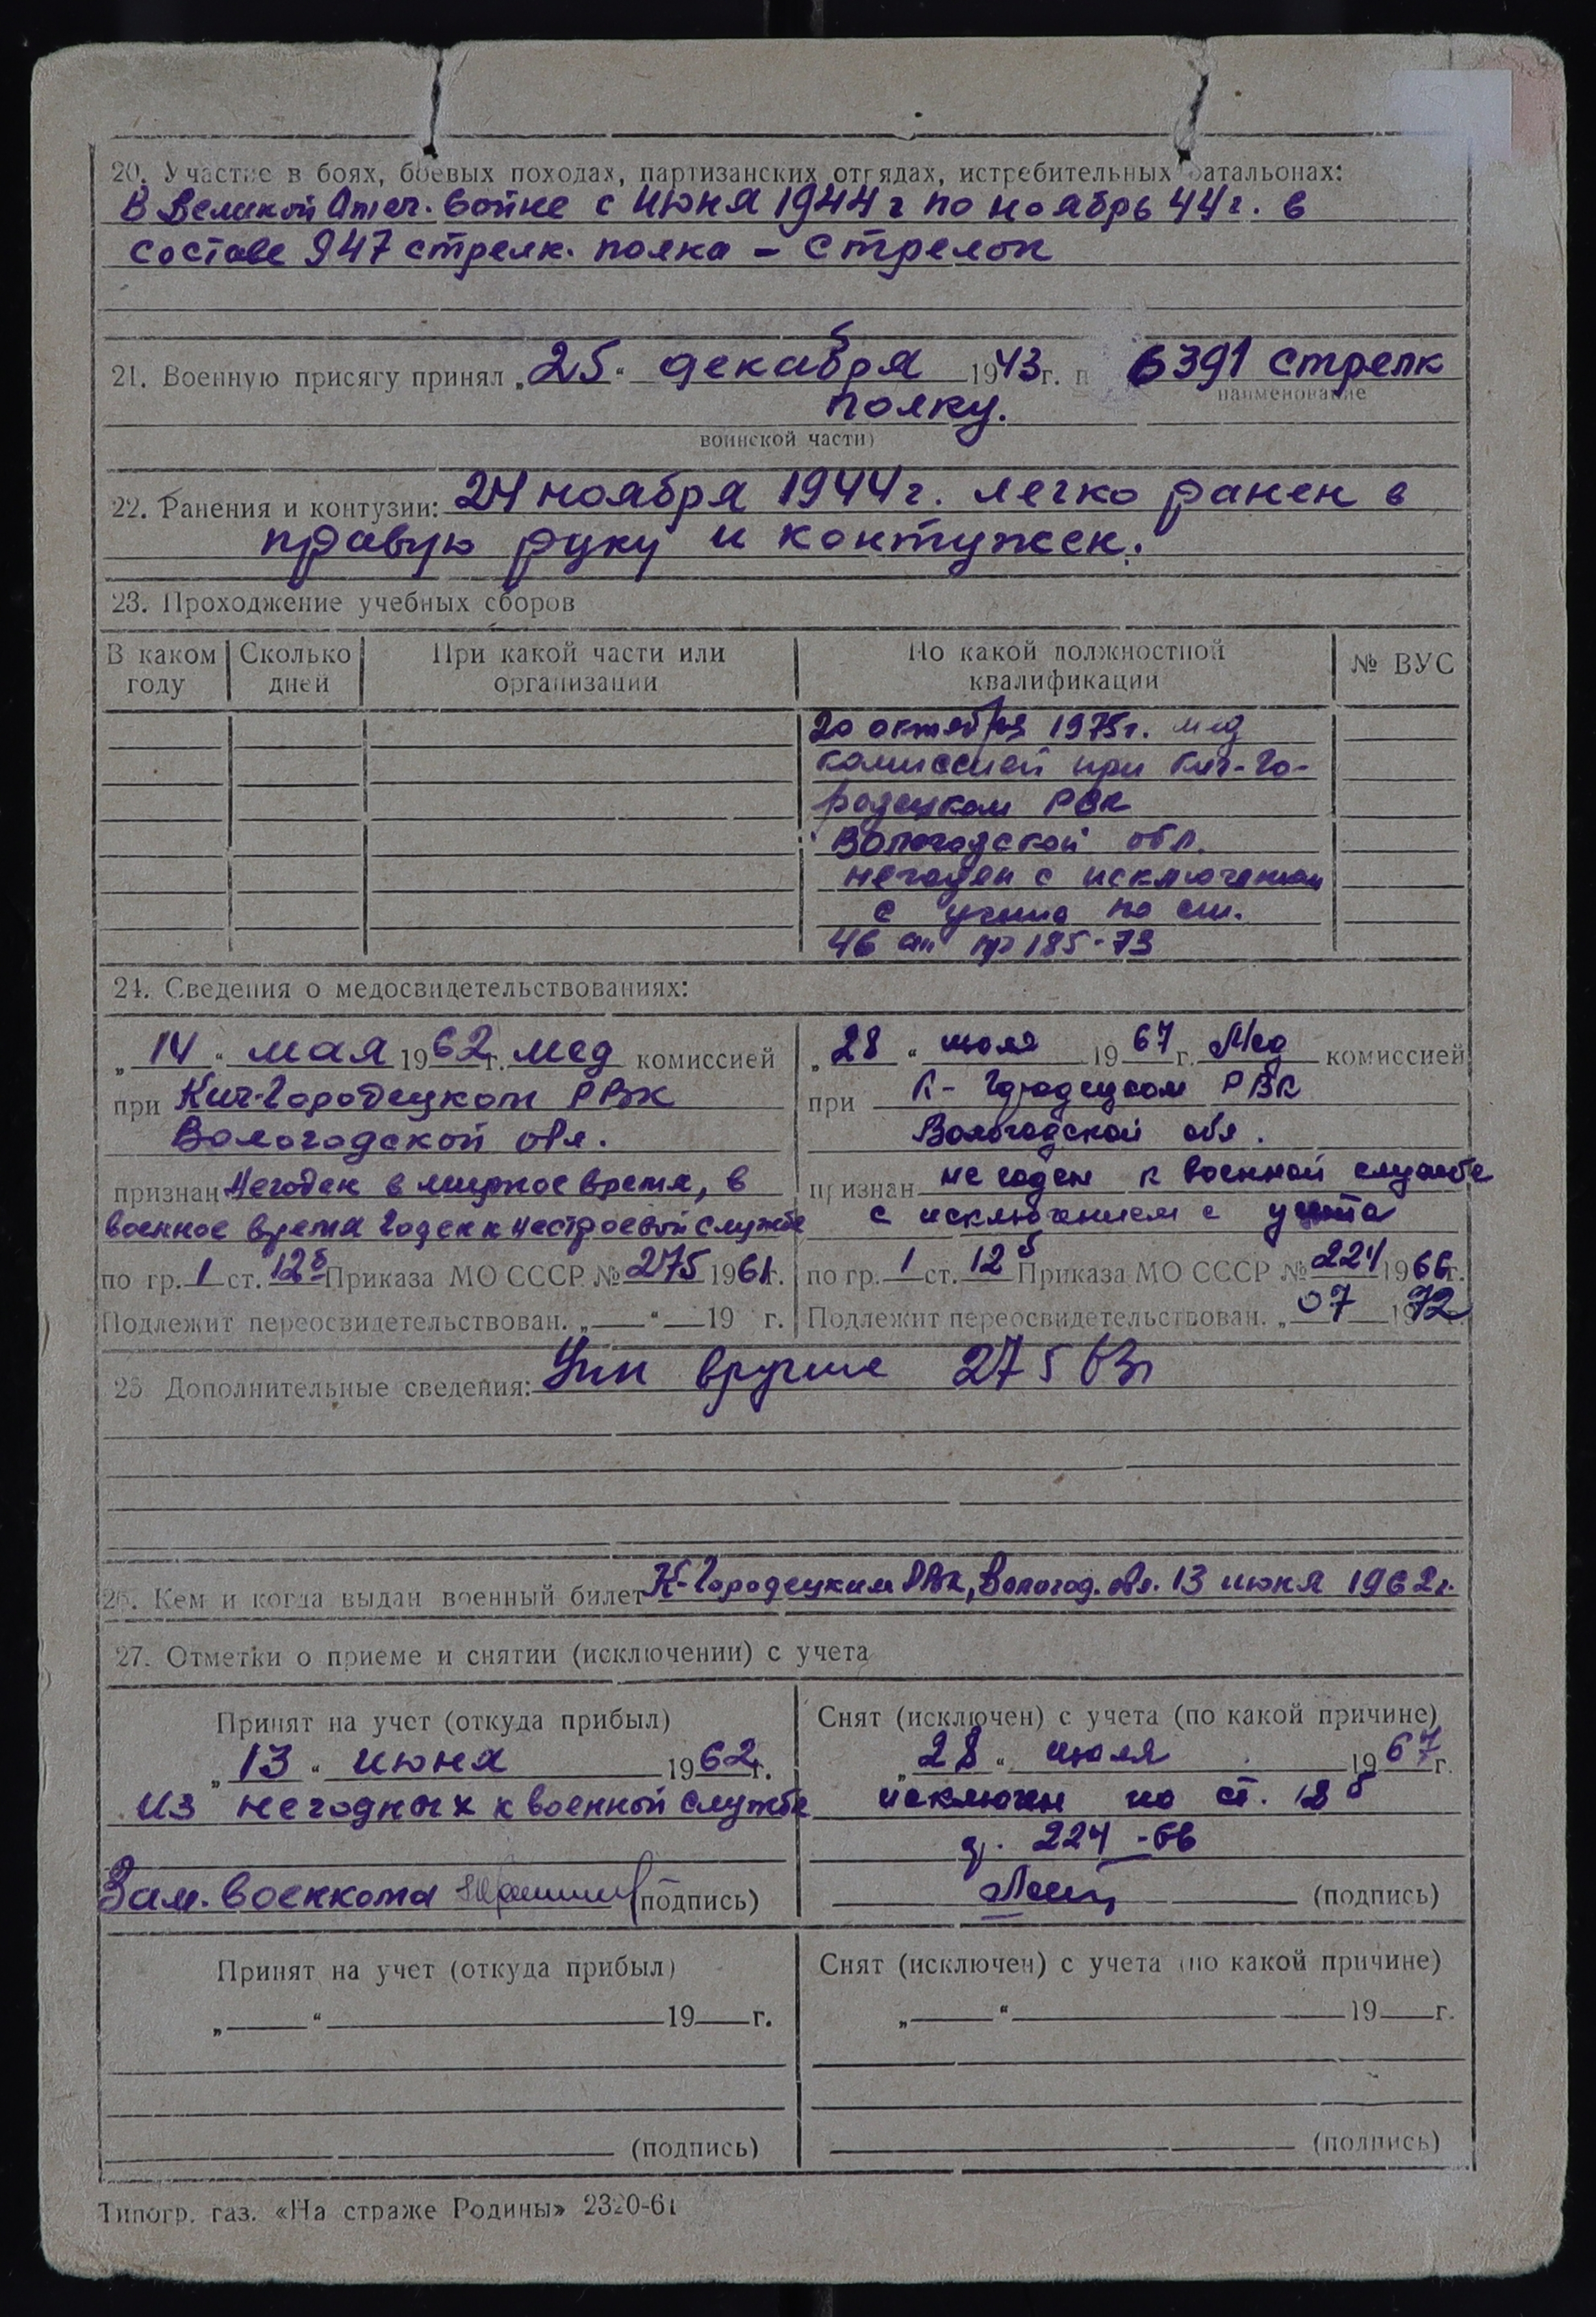 20. Участие в боях, боевых походах, партизанских отрядах, истребительных батальонах:
В Великой Отеч. войне с июня 1944 г по ноябрь 44 г. в
составе 947 стрелк. полка - стрелок
21. Военную присягу принял „25“ декабря 1943 г. п 6391 стрелк
наименование
полку.
воинской части)
22. Ранения и контузии: 24 ноября 1944 г. легко ранен в
правую руку и контужен.
23. Прохождение учебных сборов
В каком году Сколько дней При какой части или организации По какой должностной квалификации № ВУС
20 октября 1975 г. мед
комиссией при Кич-Го-
родецком РВК
Вологодской обл.
негоден с исключением
с учета по ст.
46 пр 185-73
24. Сведения о медосвидетельствованиях:
„14“ мая 1962 г. мед комиссией
при Кич-Городецком РВК
Вологодской обл.
признан Негоден в мирное время, в
военное время годен к нестроевой службе
по гр. 1 ст. 12б Приказа МО СССР № 275 1961 г.
Подлежит переосвидетельствован. „ “ 19 г.
„28“ июля 1967 г. Мед комиссией
при К-Городецком РВК
Вологодской обл.
признан не годен к военной службе
с исключением с учета
по гр. 1 ст. 12б Приказа МО СССР № 224 1966 г.
Подлежит переосвидетельствован. „07 1972 г.
25 Дополнительные сведения: 27 5 63г
26. Кем и когда выдан военный билет К-Городецким РВК, Вологод. обл. 13 июня 1962 г.
27. Отметки о приеме и снятии (исключении) с учета
Принят на учет (откуда прибыл)
„13“ июня 1962 г.
из негодных к военной службе
Зам. военкома (подпись)
Снят (исключен) с учета (по какой причине)
„28“ июля 1967 г.
исключен по ст. 12б
224-66
(подпись)
Принят на учет (откуда прибыл)
„ “ 19 г.
(подпись)
Снят (исключен) с учета (по какой причине)
„ “ 19 г.
(подпись)
Типогр. газ. «На страже Родины» 2320-61